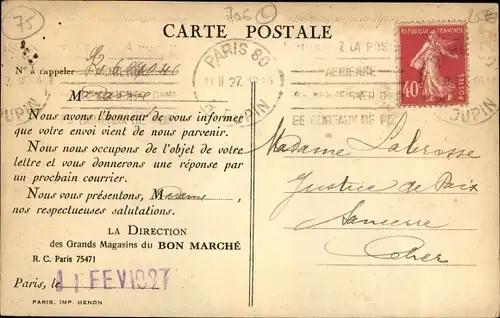 75
706
CARTE POSTALE
Nº à rappeler
PARIS 80
R. DUPIN
LA POSTE
AERIENNE
REPUBLIQUE FRANCAISE
POSTES
40c
DUPIN
M
Nous avons l'honneur de vous informer
que votre envoi vient de nous parvenir.
Nous nous occupons de l'objet de votre
lettre et vous donnerons une réponse par
un prochain courrier.
Nous vous présentons, Madame,
nos respectueuses salutations.
LA DIRECTION
des Grands Magasins du BON MARCHÉ
R. C. Paris 75471
Paris, le 11 FEV 1927
PARIS. IMP. HENON
Madame Labrosse
Justice de Paix
Sancerre
Cher